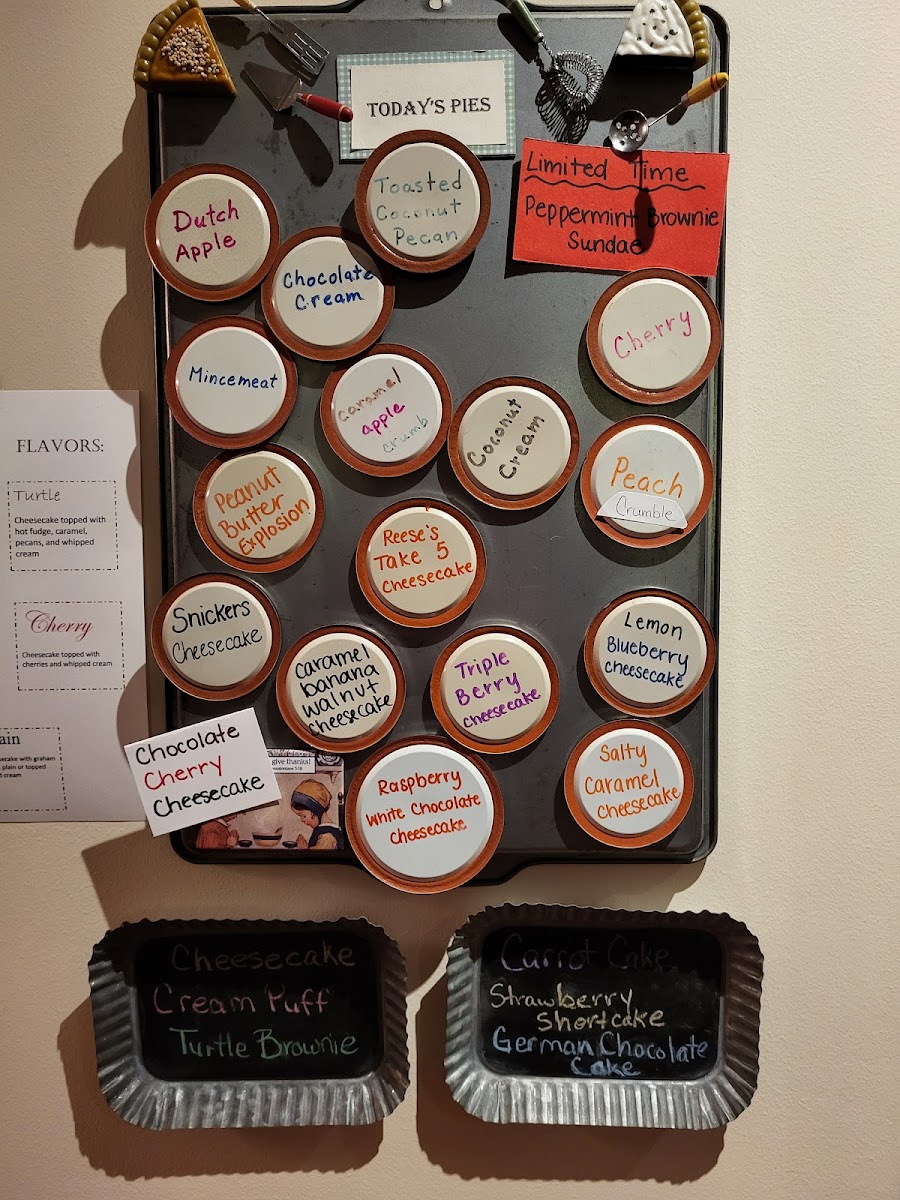 TODAY'S PIES
Limited Time
Peppermint Brownie
Sundae
Toasted
Coconut
Pecan
Dutch
Apple
Chocolate
Cream
Cherry
Mincemeat
caramel
apple
crumb
Coconut
Cream
Peach
Crumble
Peanut
Butter
Explosion
Reese's
Take 5
Cheesecake
Snickers
Cheesecake
caramel
banana
walnut
cheesecake
Triple
Berry
cheesecake
Lemon
Blueberry
cheesecake
Chocolate
Cherry
Cheesecake
give thanks!
Raspberry
White Chocolate
Cheesecake
Salty
Caramel
Cheesecake
FLAVORS:
Turtle
Cheesecake topped with
hot fudge, caramel,
pecans, and whipped
cream
Cherry
Cheesecake topped with
cherries and whipped cream
ain
ecake with graham
plain or topped
d cream
Cheesecake
Cream Puff
Turtle Brownie
Carrot Cake
Strawberry
Shortcake
German Chocolate
Cake